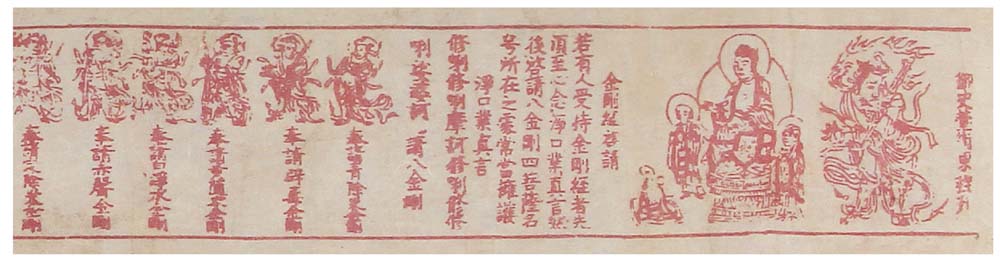 金剛經啓請
若有人受持金剛經者先
須至心念淨口業真言然
後啓請八金剛四菩薩名
号所在之處常當擁護
淨口業真言
修唎修唎摩訶修唎修修
唎娑婆訶
奉請八金剛
奉請青除災金剛
奉請辟毒金剛
奉請黃隨求金剛
奉請白淨水金剛
奉請赤聲金剛